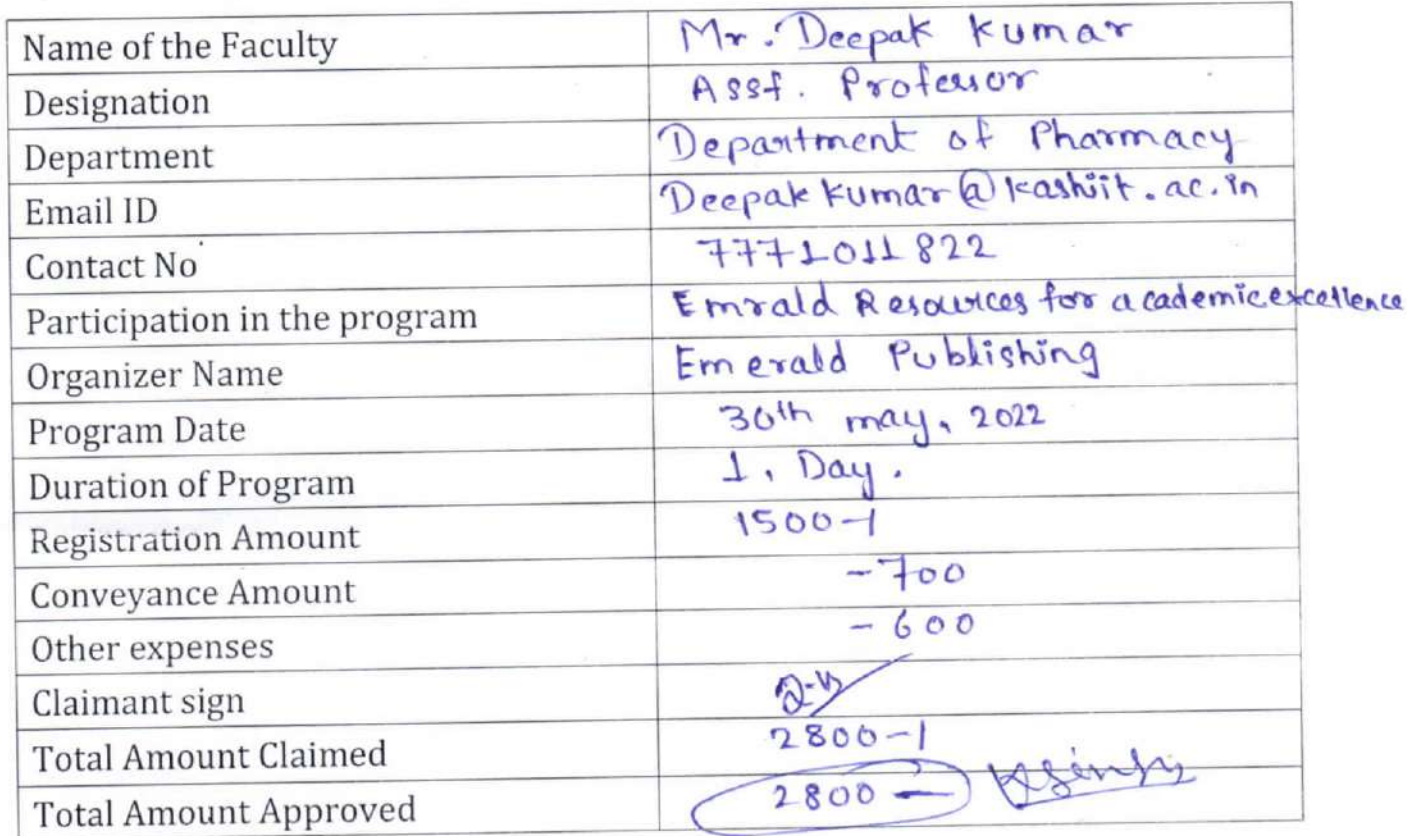 Name of the Faculty Mr. Deepak Kumar
Designation Asst. Professor
Department Department of Pharmacy
Email ID Deepakkumar@kashiit.ac.in
Contact No 7771011822
Participation in the program Emrald Resources for academic excellence
Organizer Name Emerald Publishing
Program Date 30th may, 2022
Duration of Program 1, Day.
Registration Amount 1500-/
Conveyance Amount -700
Other expenses -600
Claimant sign
Total Amount Claimed 2800-/
Total Amount Approved 2800-